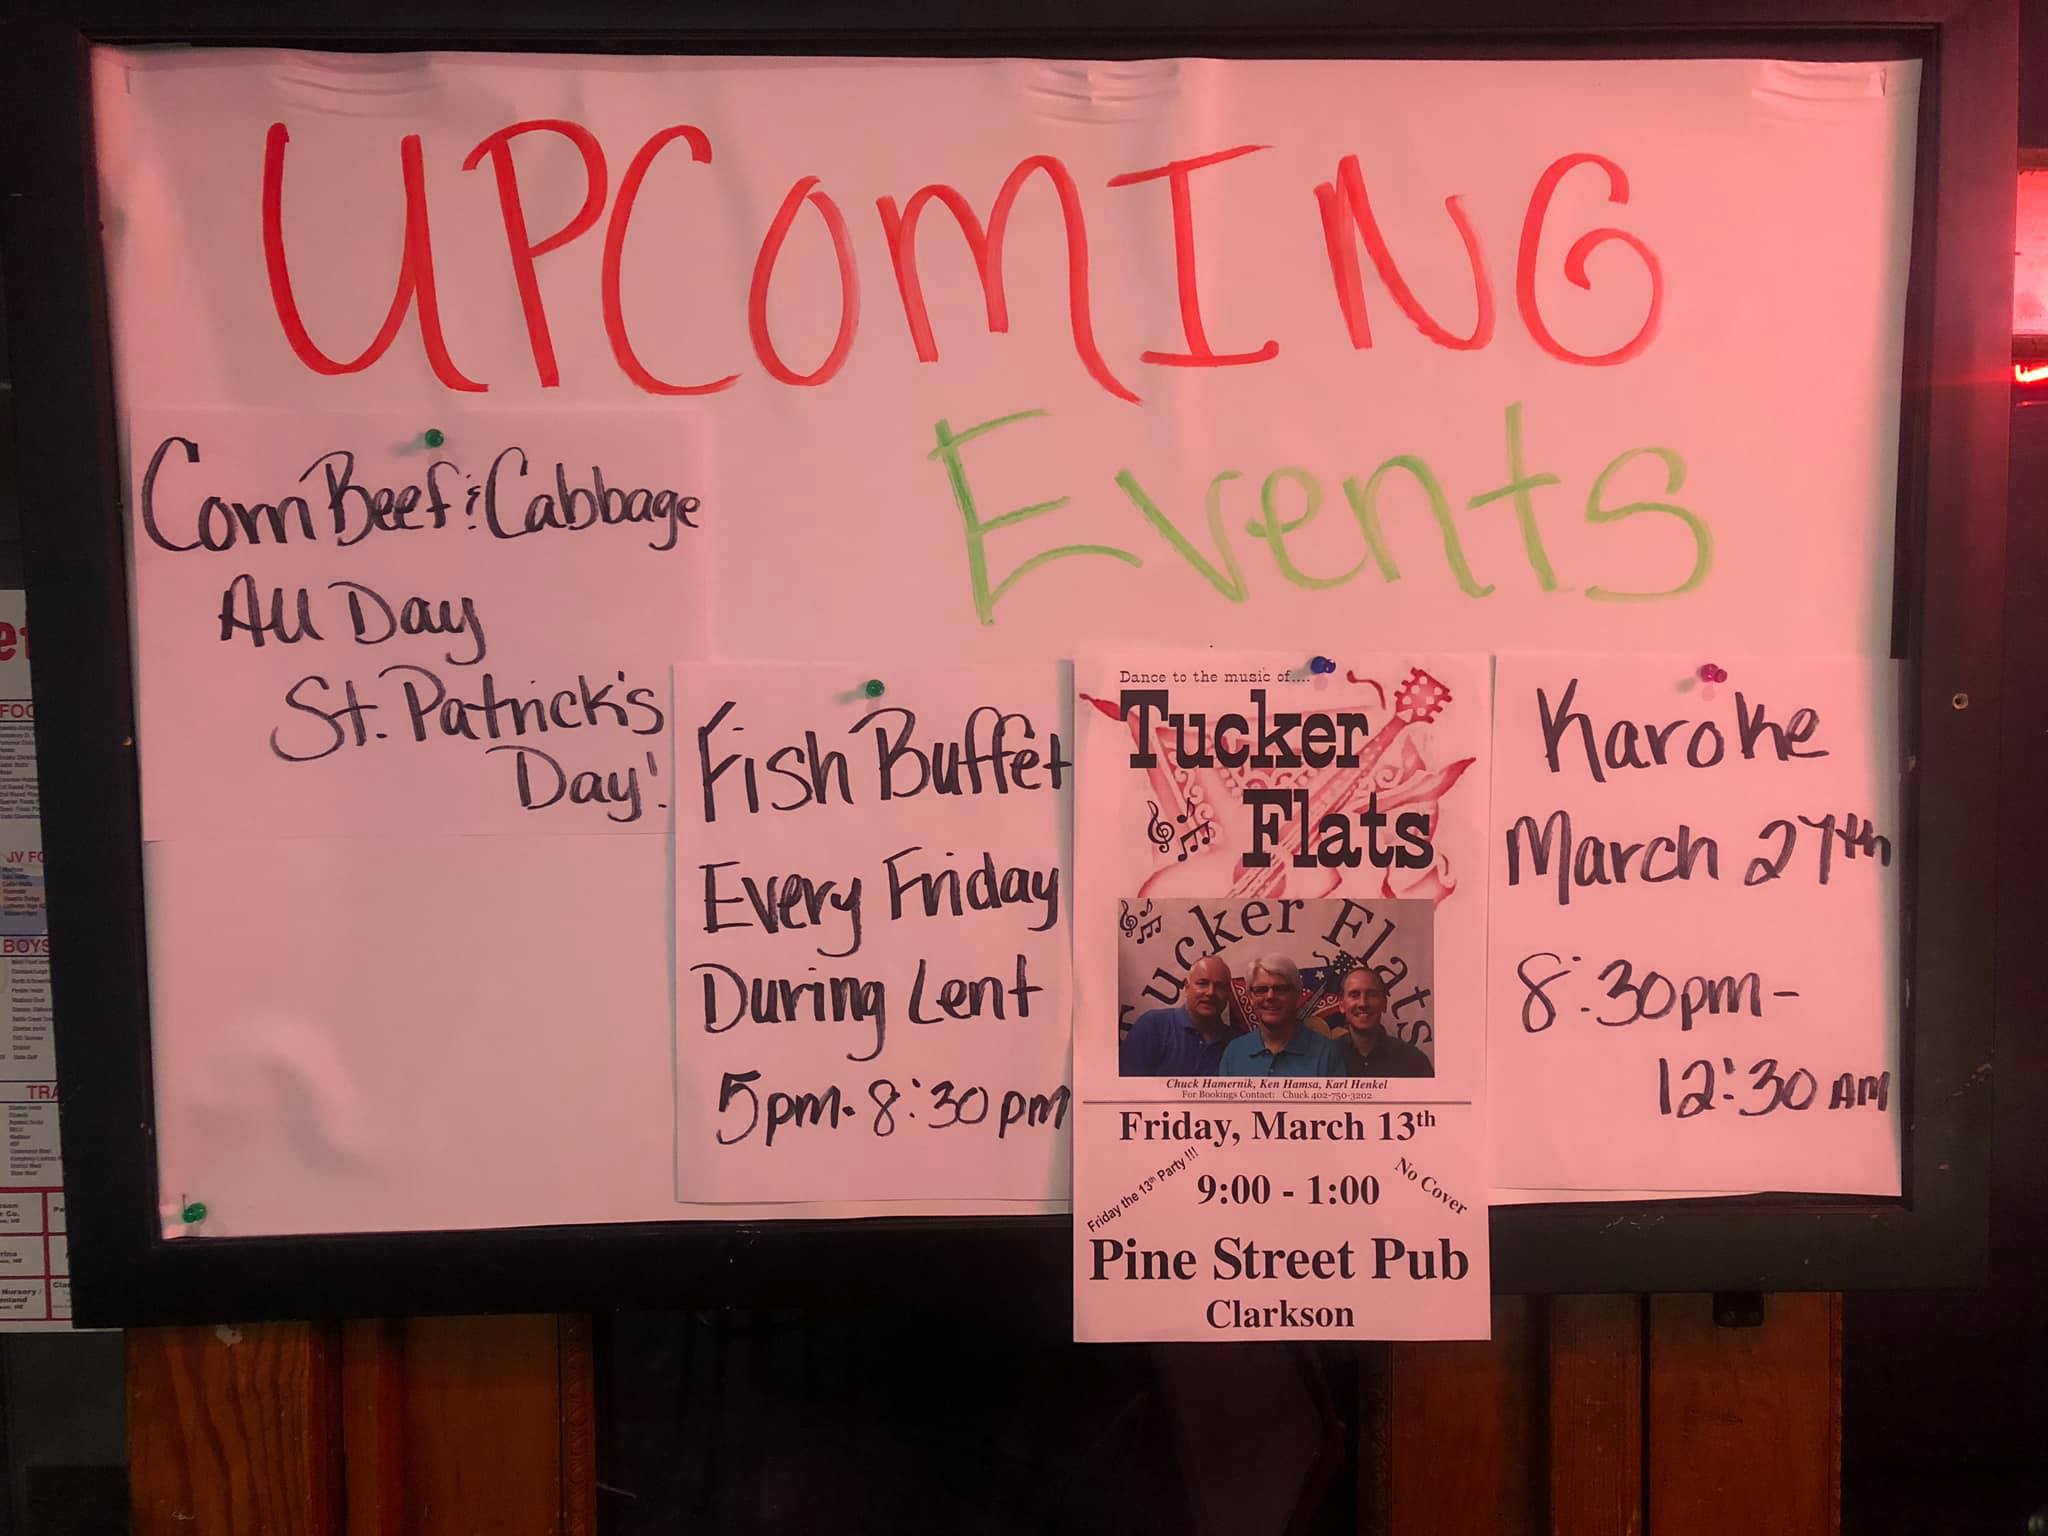 UPCOMING
Events
Corn Beef & Cabbage
All Day
St. Patrick's
Day!
Fish Buffet
Every Friday
During Lent
5pm-8:30pm
Dance to the music of....
Tucker
Flats
Tucker Flats
Chuck Hamernik, Ken Hamsa, Karl Henkel
For Bookings Contact: Chuck 402-750-3202
Friday, March 13th
Friday the 13th Party !!!
9:00 - 1:00
No Cover
Pine Street Pub
Clarkson
Karoke
March 27th
8:30pm-
12:30AM
JV FO
BOYS
TRA